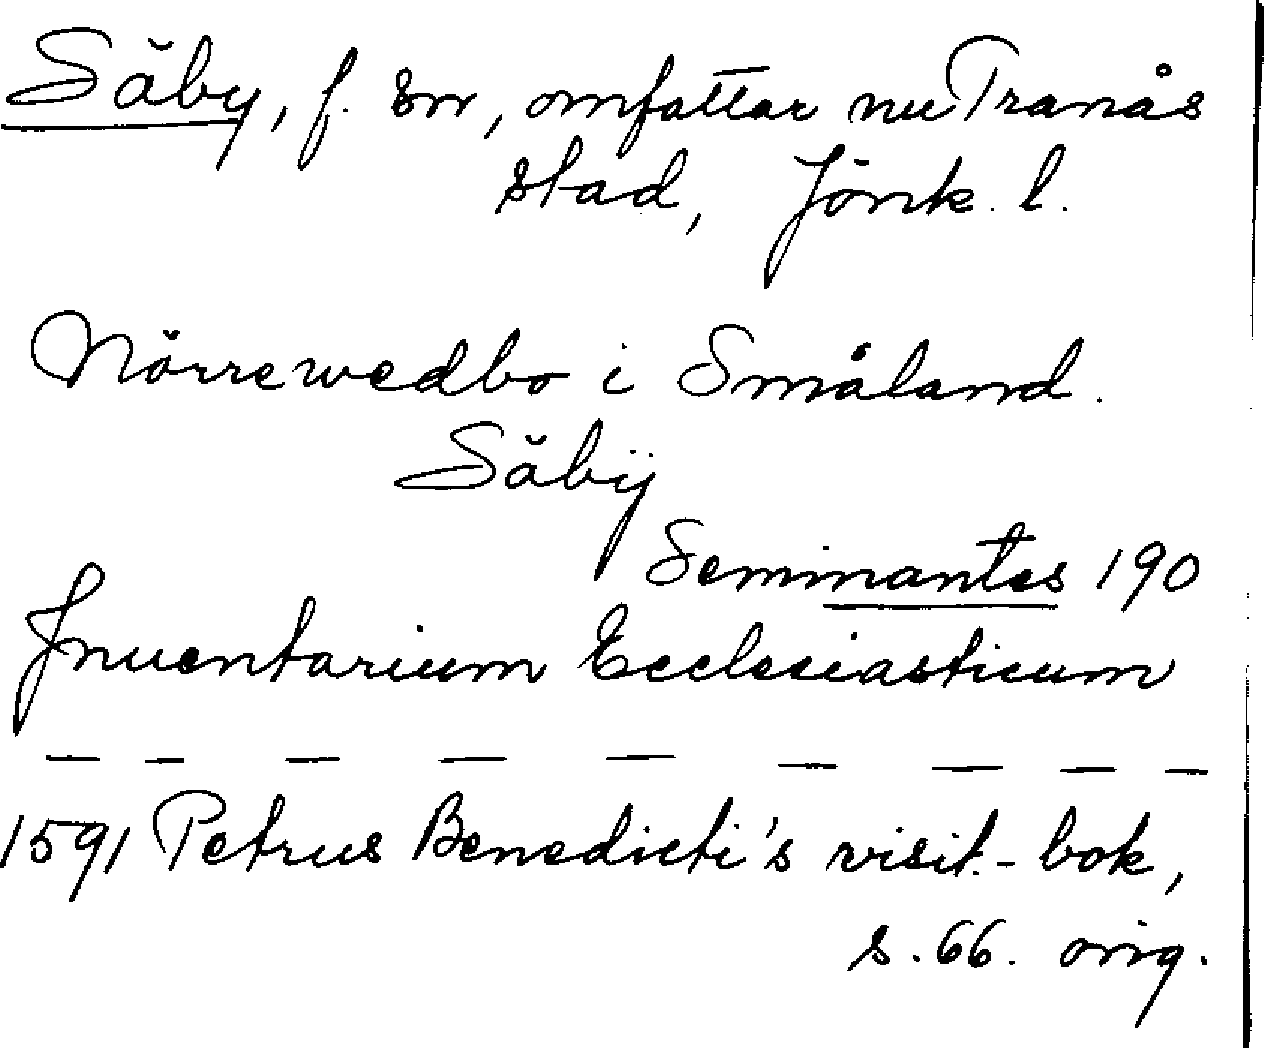 Säby, f. sn, omfattar nu Tranås
stad, Jönk. l.
Nörrewedbo i Småland.
Säbÿ
Seminantes 190
Inuentarium Ecclesiasticum
— — — — — — — — —
1591 Petrus Benedicti's visit.-bok,
s. 66. orig.